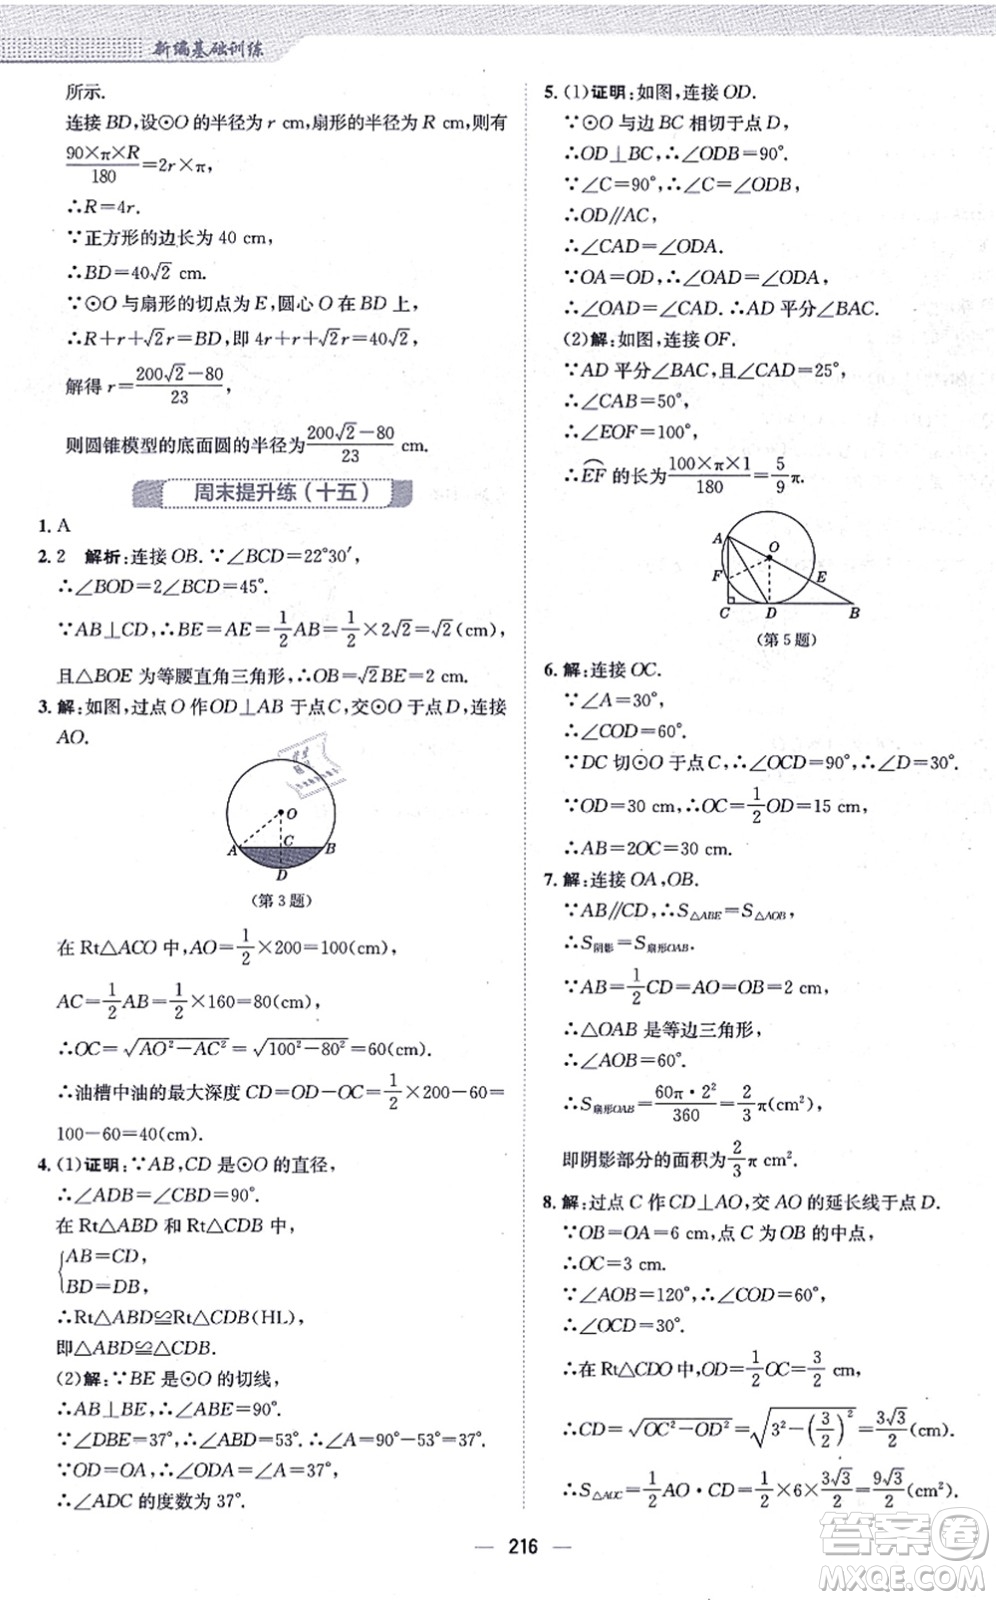 新编基础训练
所示.
连接BD,设⊙O的半径为r cm,扇形的半径为R cm,则有
90×π×R/180=2r×π,
∴R=4r.
∵正方形的边长为40 cm,
∴BD=40√2 cm.
∵⊙O与扇形的切点为E,圆心O在BD上,
∴R+r+√2r=BD,即4r+r+√2r=40√2.
解得r=(200√2-80)/23,
则圆锥模型的底面圆的半径为(200√2-80)/23 cm.
周末提升练(十五)
1. A
2. 2 解析:连接OB.∵∠BCD=22°30′,
∴∠BOD=2∠BCD=45°.
∵AB⊥CD,∴BE=AE=1/2AB=1/2×2√2=√2(cm),
且△BOE为等腰直角三角形,∴OB=√2BE=2 cm.
3. 解:如图,过点O作OD⊥AB于点C,交⊙O于点D,连接
AO.
O
A C B
D
(第3题)
在Rt△ACO中,AO=1/2×200=100(cm),
AC=1/2AB=1/2×160=80(cm),
∴OC=√(AO²-AC²)=√(100²-80²)=60(cm).
∴油槽中油的最大深度CD=OD-OC=1/2×200-60=
100-60=40(cm).
4. (1)证明:∵AB,CD是⊙O的直径,
∴∠ADB=∠CBD=90°.
在Rt△ABD和Rt△CDB中,
{AB=CD,
BD=DB,
∴Rt△ABD≌Rt△CDB(HL),
即△ABD≌△CDB.
(2)解:∵BE是⊙O的切线,
∴AB⊥BE,∴∠ABE=90°.
∵∠DBE=37°,∴∠ABD=53°.∴∠A=90°-53°=37°.
∵OD=OA,∴∠ODA=∠A=37°,
∴∠ADC的度数为37°.
5. (1)证明:如图,连接OD.
∵⊙O与边BC相切于点D,
∴OD⊥BC,∴∠ODB=90°.
∵∠C=90°,∴∠C=∠ODB,
∴OD∥AC,
∴∠CAD=∠ODA.
∵OA=OD,∴∠OAD=∠ODA,
∴∠OAD=∠CAD.∴AD平分∠BAC.
(2)解:如图,连接OF.
∵AD平分∠BAC,且∠CAD=25°,
∴∠CAB=50°,
∴∠EOF=100°,
∴EF的长为(100×π×1)/180=5/9π.
A
O
F E
C D B
(第5题)
6. 解:连接OC.
∵∠A=30°,
∴∠COD=60°.
∵DC切⊙O于点C,∴∠OCD=90°,∴∠D=30°.
∵OD=30 cm,∴OC=1/2OD=15 cm,
∴AB=2OC=30 cm.
7. 解:连接OA,OB.
∵AB∥CD,∴S△ABE=S△AOB,
∴S阴影=S扇形OAB.
∵AB=1/2CD=AO=OB=2 cm,
∴△OAB是等边三角形,
∴∠AOB=60°.
∴S扇形OAB=(60π·2²)/360=2/3π(cm²),
即阴影部分的面积为2/3π cm².
8. 解:过点C作CD⊥AO,交AO的延长线于点D.
∵OB=OA=6 cm,点C为OB的中点,
∴OC=3 cm.
∵∠AOB=120°,∴∠COD=60°,
∴∠OCD=30°.
∴在Rt△CDO中,OD=1/2OC=3/2 cm,
∴CD=√(OC²-OD²)=√(3²-(3/2)²)=3√3/2(cm).
∴S△AOC=1/2AO·CD=1/2×6×3√3/2=9√3/2(cm²).
216
答案圈
MXQE.COM